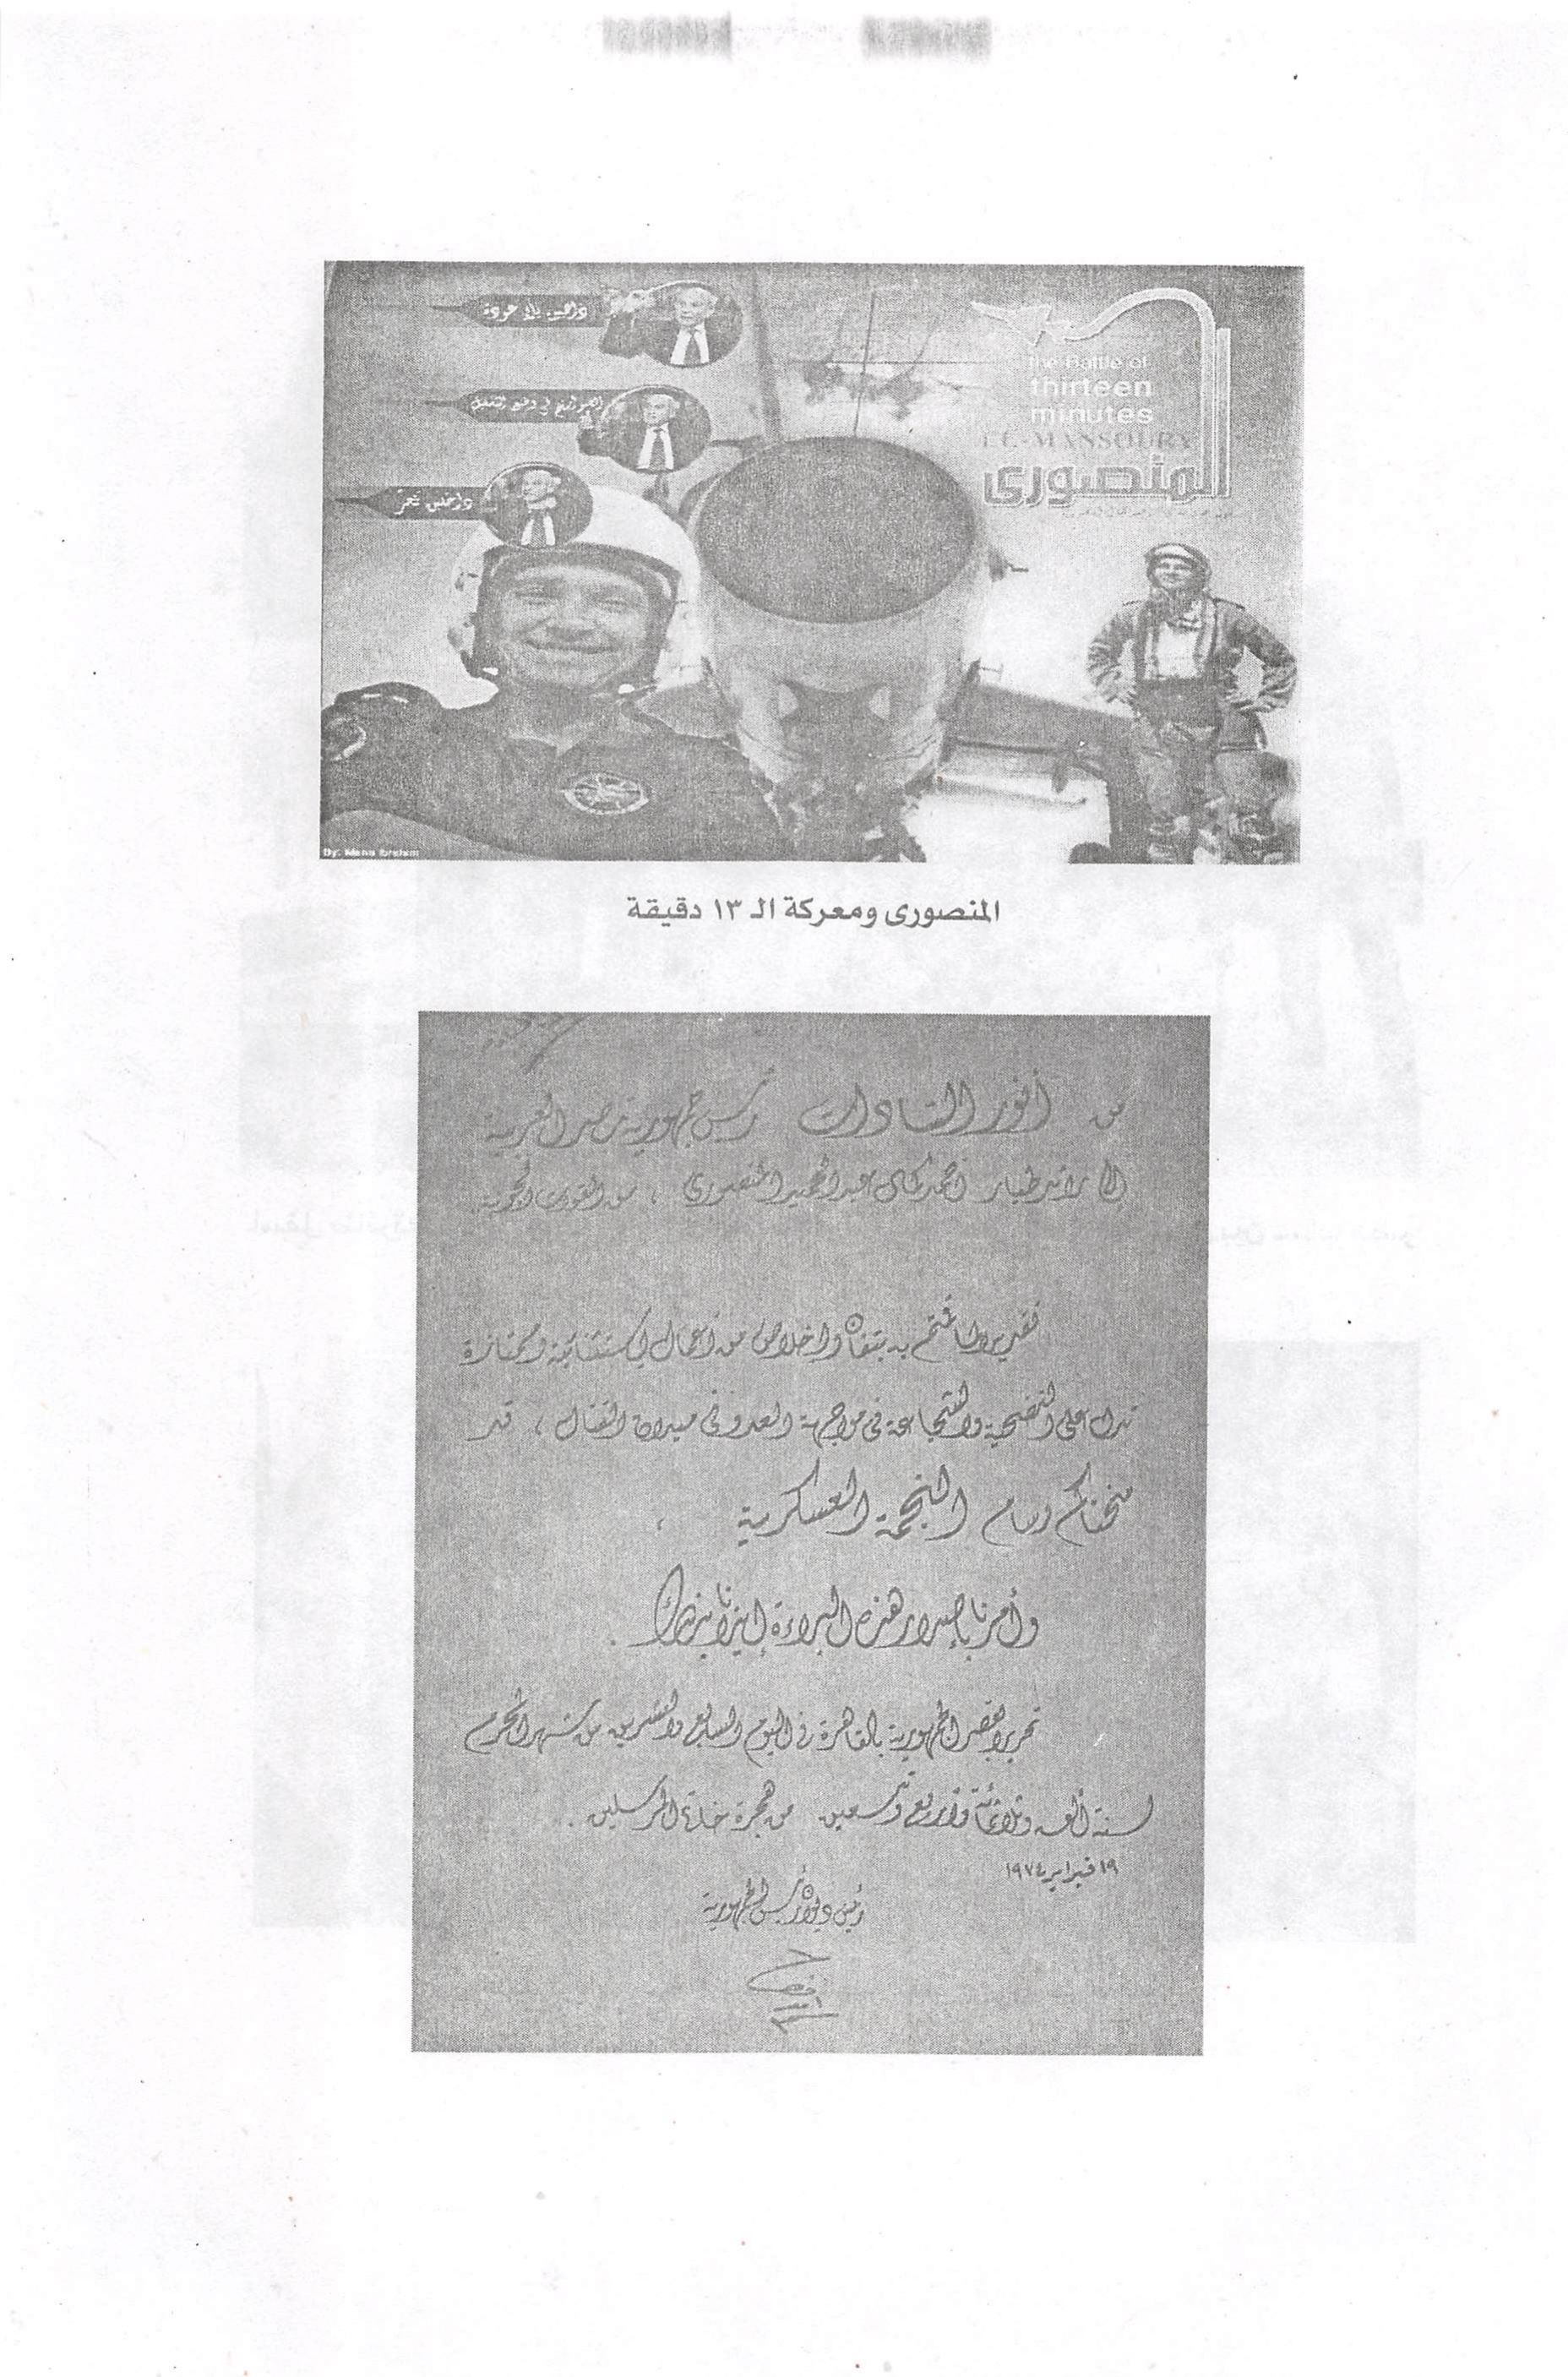 the Battle of
thirteen
minutes
EL-MANSOURY
المنصورى
المنصورى ومعركة الـ ١٣ دقيقة
من أنور السادات رئيس جمهورية مصر العربية
إلى رائد طيار أحمد كمال عبد الحميد المنصورى ، من القوات الجوية
تقديرا لما قمتم به بتفان واخلاص من أعمال استثنائية وممتازة
تدل على التضحية والشجاعة فى مواجهة العدو فى ميدان القتال ، قد
منحناكم وسام النجمة العسكرية ،
وأمرنا بإصدار هذه البراءة إيذانا بذلك .
تحريرا بقصر الجمهورية بالقاهرة فى اليوم السابع والعشرين من شهر المحرم
لسنة ألف وثلاثمائة وأربع وتسعين من هجرة خاتم المرسلين .
١٩ فبراير ١٩٧٤
رئيس ديوان رئيس الجمهورية